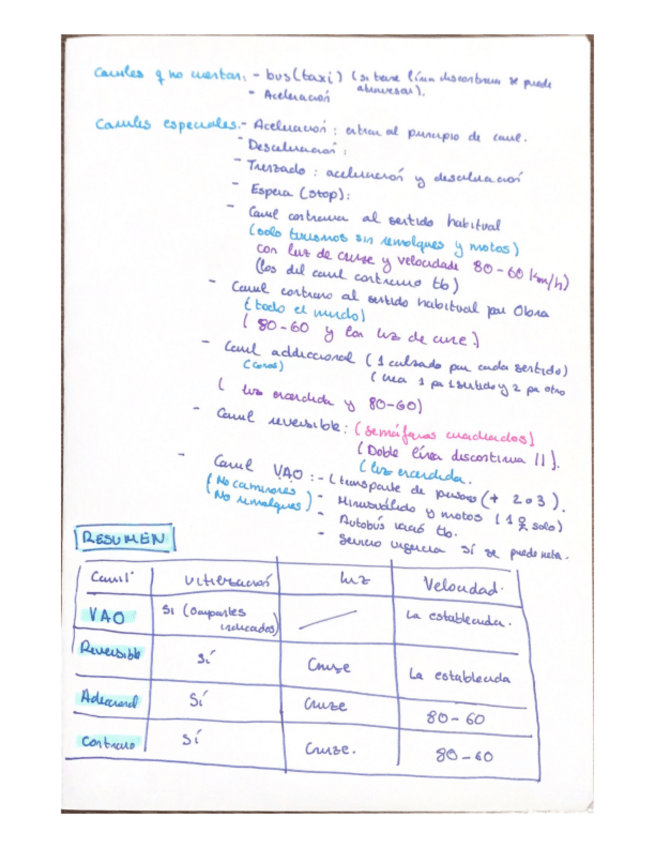 Carriles q no cuentan: - bus (taxi) (si tiene línea discontinua se puede
atravesar).
- Aceleración
Carriles especiales: - Aceleración : entrar al principio de carril.
- Desceleración :
- Trenzado : aceleración y desceleración
- Espera (stop):
- Carril contrario al sentido habitual
(solo turismos sin remolques y motos)
con luz de cruce y velocidade 80-60 km/h)
(los del carril contrario tb)
- Carril contrario al sentido habitual por Obra
(todo el mundo)
( 80-60 y con luz de cruce )
- Carril addiccional ( 1 calzada por cada sentido)
(conos) ( crea 1 pa 1 sentido y 2 pa otro
( luz encendida y 80-60)
- Carril reversible: (semáforos cuadrados)
(Doble línea discontinua ||).
(luz encendida.
- Carril VAO : - (transporte de personas (+ 2 o 3 ).
(No camiones - Minusválido y motos (1 solo)
No remolques) - Autobús vacío tb.
- Servicio urgencia sí se puede meter.
RESUMEN
Carril Utilización luz Velocidad.
VAO Si (Ocupantes
indicados) La establecida.
Reversible Sí Cruse La establecida
Adiccional Sí Cruse 80-60
Contrario Sí Cruse. 80-60